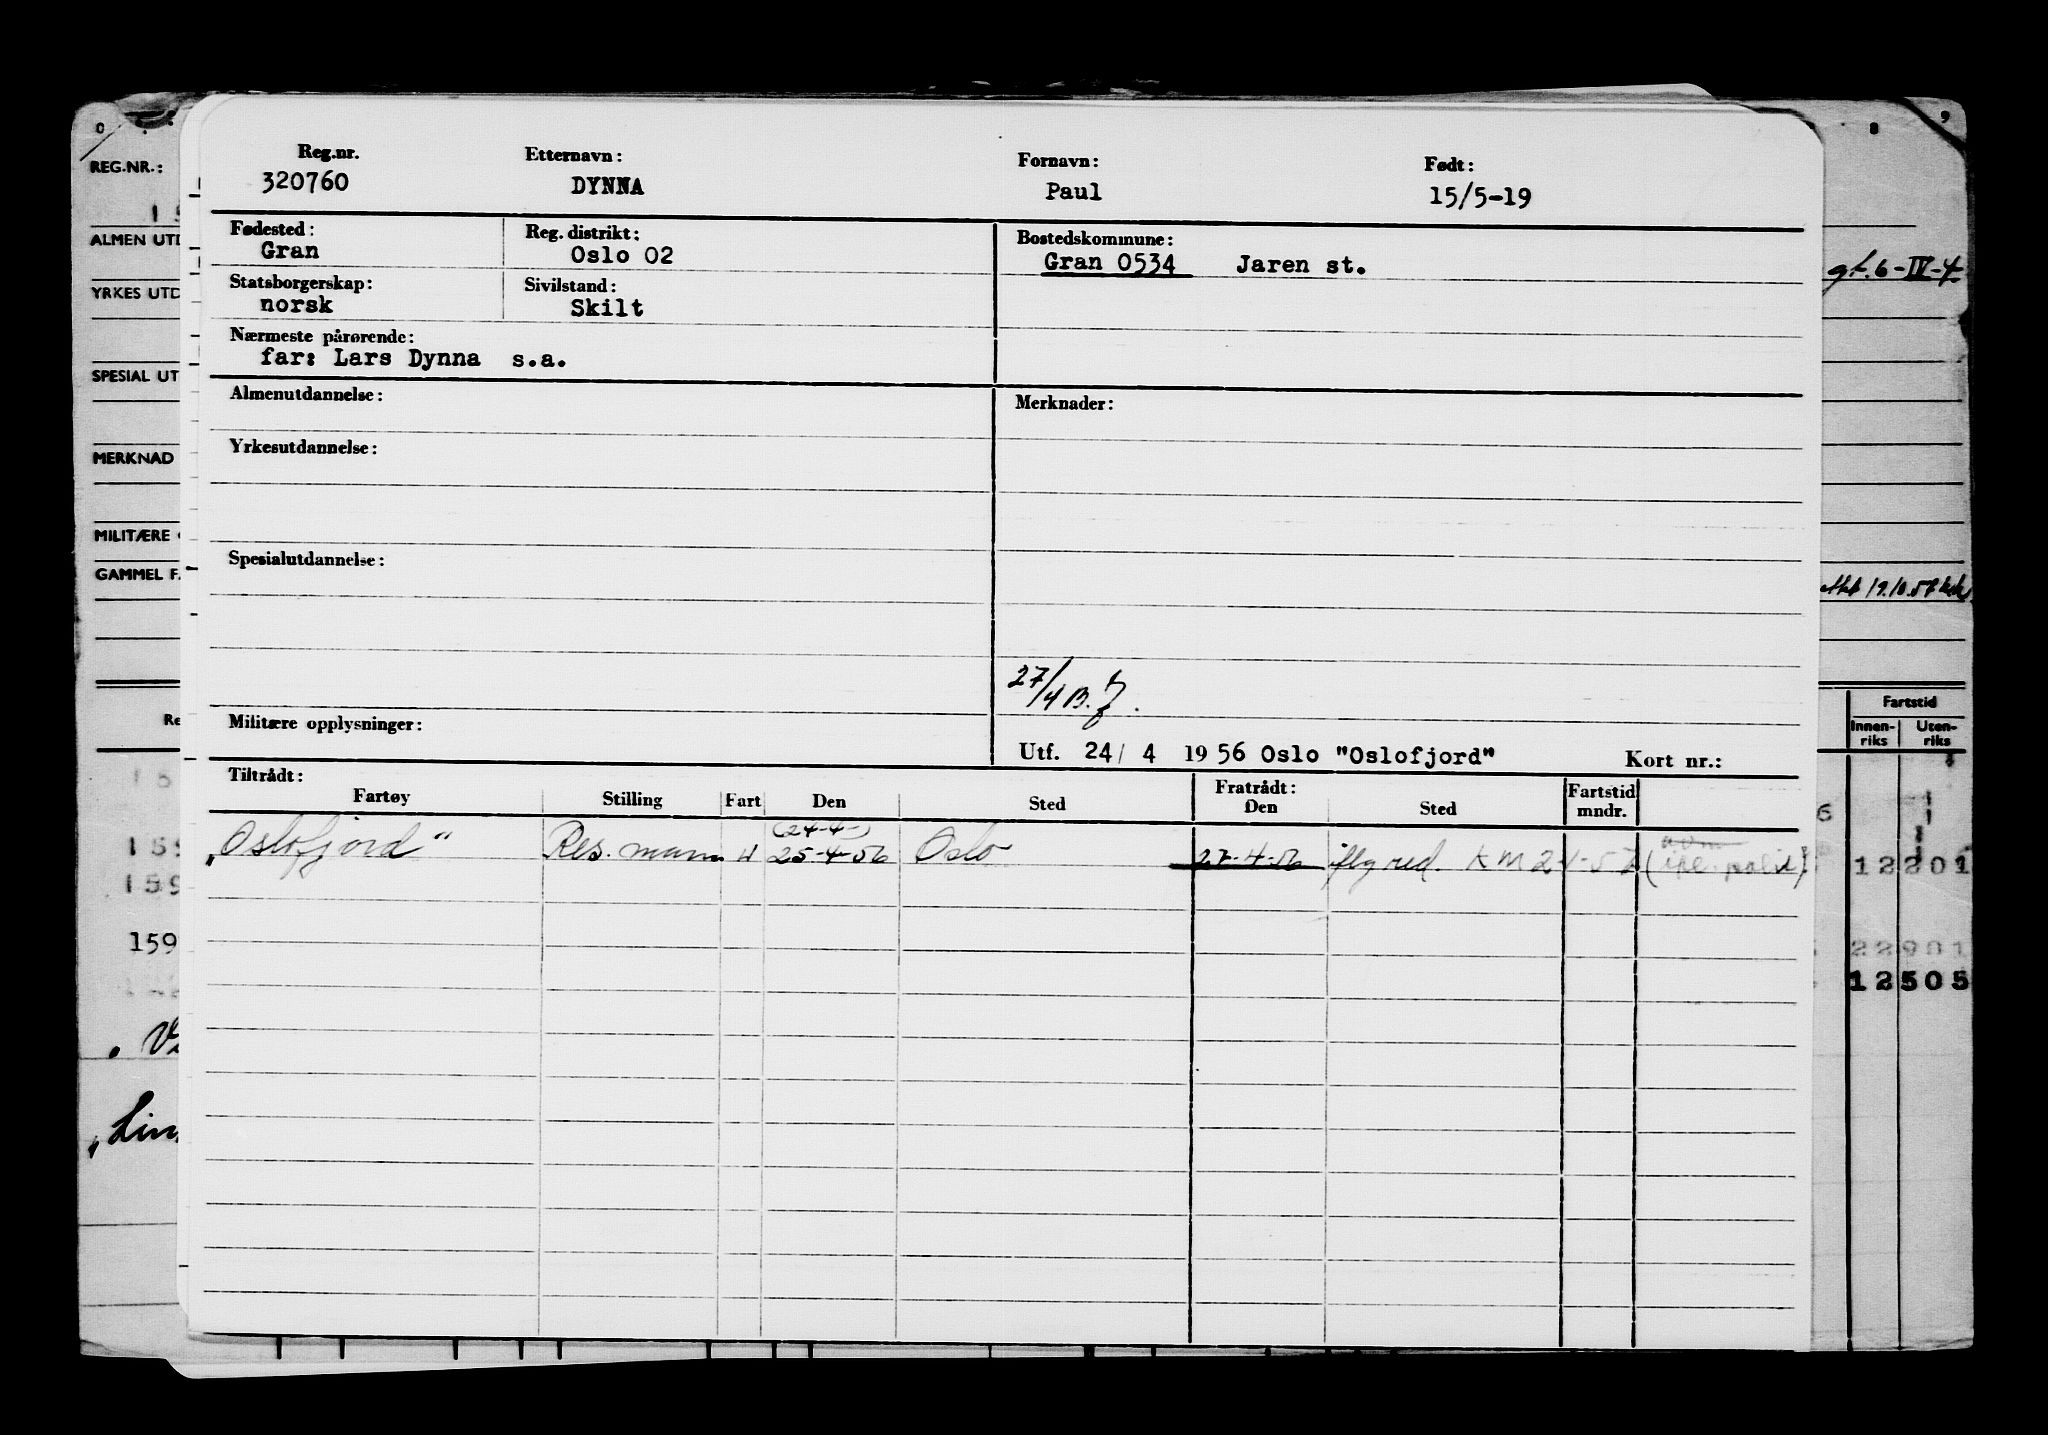 Reg.nr. Etternavn: Fornavn: Født:
320760 DYNNA Paul 15/5-19
Fødested: Reg. distrikt: Bostedskommune:
Gran Oslo 02 Gran 0534 Jaren st.
Statsborgerskap: Sivilstand:
norsk Skilt
Nærmeste pårørende:
far: Lars Dynna s.a.
Almenutdannelse: Merknader:
Yrkesutdannelse:
Spesialutdannelse:
27/4 B.
Militære opplysninger:
Utf. 24/ 4 19 56 Oslo "Oslofjord" Kort nr.:
Tiltrådt: Fratrådt:
Fartøy Stilling Fart Den Sted Den Sted Fartstid mndr.
(24-4-)
„Oslofjord" Res. mann U 25-4-56 Oslo 27-4-56 iflg red. KM 2-1-57
0 8 9
REG.NR.:
ALMEN UTD
gt. 6-IV-4
YRKES UTD
SPESIAL UT
MERKNAD
MILITÆRE
GAMMEL FA
19.10.57
Fartstid
Innen-riks Uten-riks
Re
159 12201
159
159 22901
12505